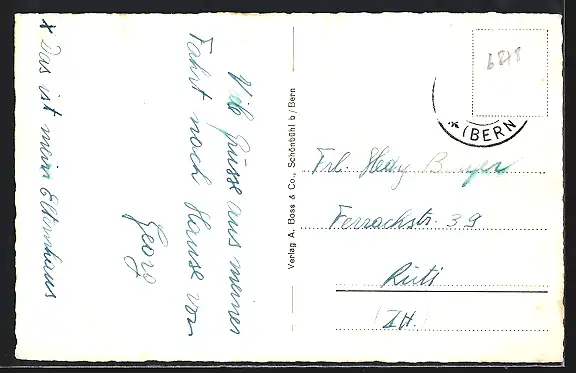 Viele Grüsse aus meiner
Fahrt nach Hause von
Georg
x Das ist mein Elternhaus
Verlag A. Boss & Co., Schönbühl b/Bern
6878
* (BERN
Frl. Hedy
Ferrachstr. 39
Rüti
(ZH.)